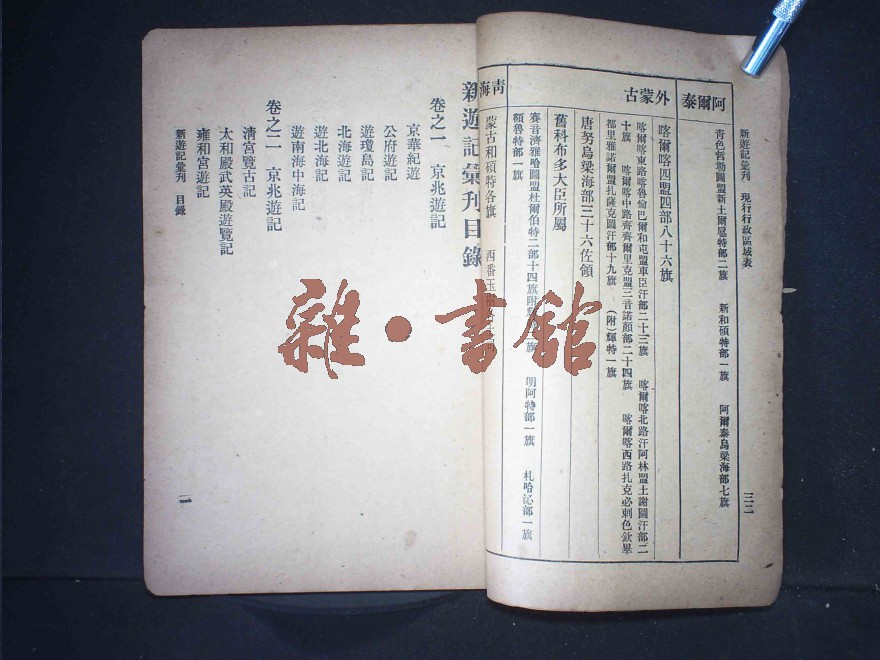 新遊記彙刋 現行行政區域表
三二
阿爾泰
青色哲勒圖盟新土爾扈特部二旗 新和碩特部一旗 阿爾泰烏梁海部七旗
外蒙古
喀爾喀四盟四部八十六旗
喀爾喀東路喀魯倫巴爾和屯盟車臣汗部二十三旗 喀爾喀北路汗阿林盟土謝圖汗部二
十旗 喀爾喀中路齊齊爾里克盟三音諾顏部二十四旗 喀爾喀西路扎克必剌色欽畢
都里雅諾爾盟扎薩克圖汗部十九旗 (附)輝特一旗
唐努烏梁海部三十六佐領
舊科布多大臣所屬
賽音濟雅哈圖盟杜爾伯特二部十四旗附輝特 旗 明阿特部一旗 札哈沁部一旗
額魯特部一旗
青海
蒙古和碩特各旗 西番玉
新遊記彙刋目錄
卷之一 京兆遊記
京華紀遊
公府遊記
遊瓊島記
北海遊記
遊北海記
遊南海中海記
卷之二 京兆遊記
清宮覽古記
太和殿武英殿遊覽記
雍和宮遊記
新遊記彙刋 目錄
一
雜·書館